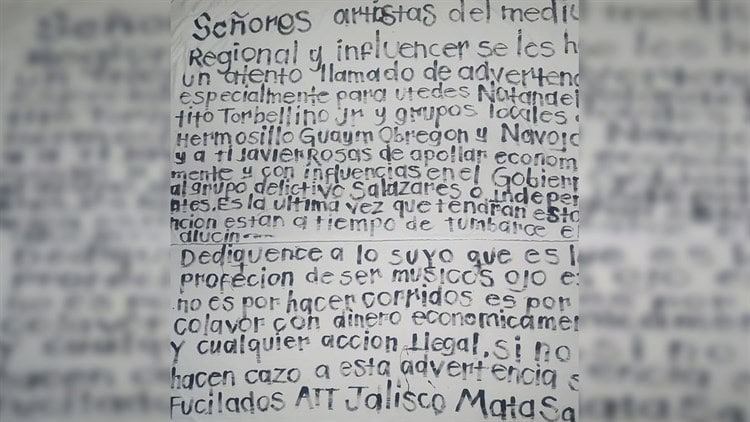 Señores artistas del medi
Regional y influencer se les h
un atento llamado de advertenc
especialmente para utedes Natanael
tito Torbellino Jr y grupos locales
Hermosillo Guaym Obregon y Navojo
y a ti Javier Rosas de apollar econom
mente y con influencias en el Gobiern
al grupo delictivo Salazares o indepen
ntes. Es la ultima vez que tendran esta
ncion estan a tiempo de tumbarce e
alucin---
Dediquence a lo suyo que es l
profecion de ser musicos ojo e
no es por hacer corridos es por
colavor con dinero economicamen
Y cualquier accion Ilegal, si no
hacen cazo a esta advertencia s
Fucilados ATT Jalisco MataSa